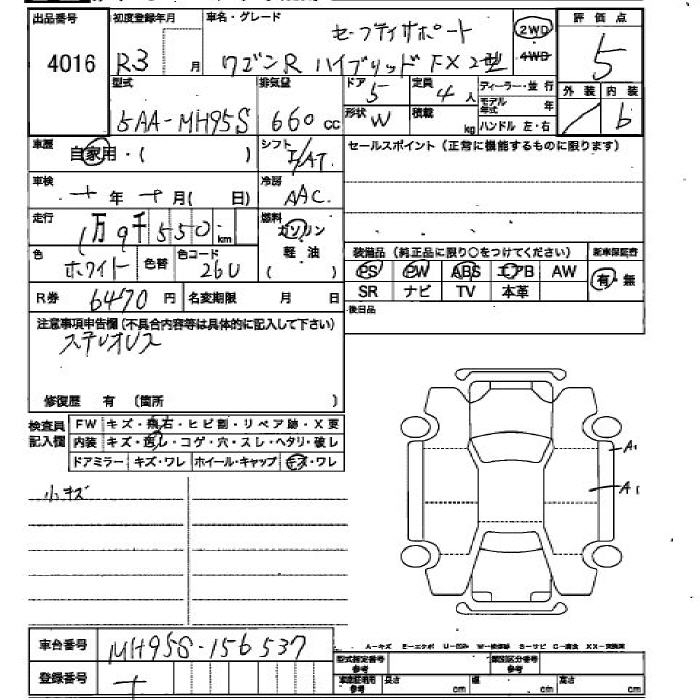 出品番号 初度登録年月 車名・グレード 評価点
4016 R3 月 セーフティサポート
ワゴンR ハイブリッド FX 2型 2WD 4WD 5
型式 排気量 ドア 5 定員 4人 ディーラー・並行 外装 内装
5AA-MH95S 660cc 形状 W 積載 kg モデル年式 年 b
ハンドル 左・右
車歴 自家用・( ) シフト I/AT セールスポイント(正常に機能するものに限ります)
車検 年 月( 日) 冷房 AAC
走行 1万9千550km 燃料 ガソリン
軽油
( )
色 ホワイト 色替 色コード 26U 装備品(純正品に限り○をつけてください) 新車保証書
PS PW ABS エアB AW 有・無
SR ナビ TV 本革
R券 6470円 名変期限 月 日 後日品
注意事項申告欄(不具合内容等は具体的に記入して下さい)
ステレオレス
修復歴 有 (箇所 )
検査員記入欄 FW キズ・飛石・ヒビ割・リペア跡・X要
内装 キズ・汚レ・コゲ・穴・スレ・ヘタリ・破レ
ドアミラー キズ・ワレ ホイール・キャップ キズ・ワレ
A1
A1
小キズ
車台番号 MH95S-156537
A-キズ E-エクボ
登録番号
型式指定番号 参考 類別区分番号 参考
長さ cm 幅 cm 高さ cm